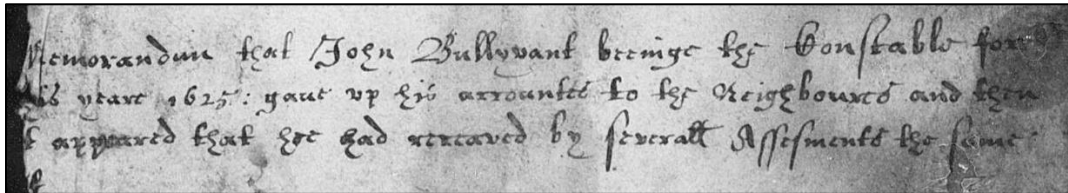 Memorandum that John Bullyvant beeinge the Constable for
his yeare 1625: gaue vp his accountes to the Neighboures and then
it appeared that hee had receaved by severall Assesments the some
of